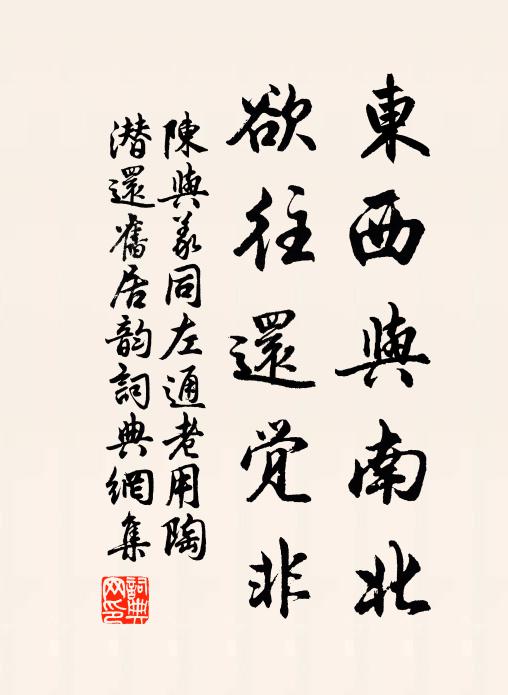 東西與南北
欲往還覚非
陳與義同左通老用陶
潜還舊居韵詞典網集
詞典网印